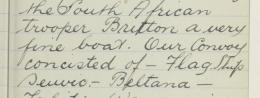 the South African
trooper Britton a very
fine boat. Our Convoy
concisted of - Flag Ship
Beltana -